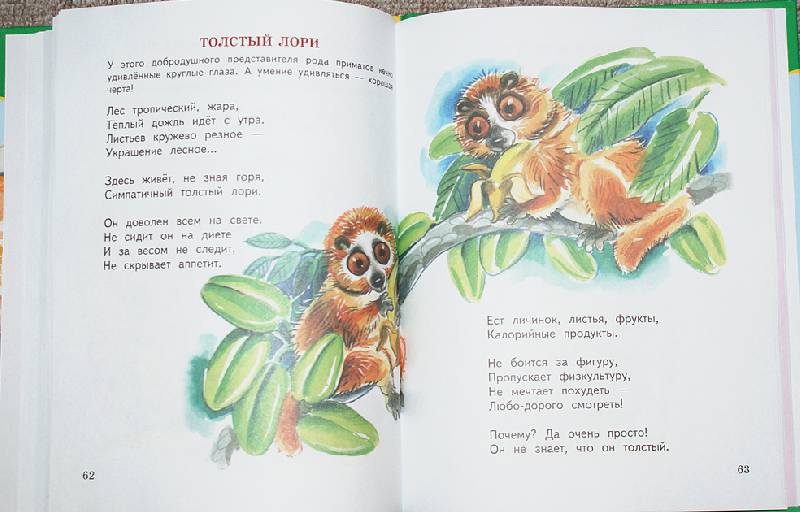 ТОЛСТЫЙ ЛОРИ
У этого добродушного представителя рода приматов
удивлённые круглые глаза. А умение удивляться — хорошая
черта!
Лес тропический, жара,
Тёплый дождь идёт с утра.
Листьев кружево резное —
Украшение лесное...
Здесь живёт, не зная горя,
Симпатичный толстый лори.
Он доволен всем на свете.
Не сидит он на диете
И за весом не следит,
Не скрывает аппетит.
62
Ест личинок, листья, фрукты,
Калорийные продукты.
Не боится за фигуру,
Пропускает физкультуру,
Не мечтает похудеть —
Любо-дорого смотреть!
Почему? Да очень просто!
Он не знает, что он толстый.
63